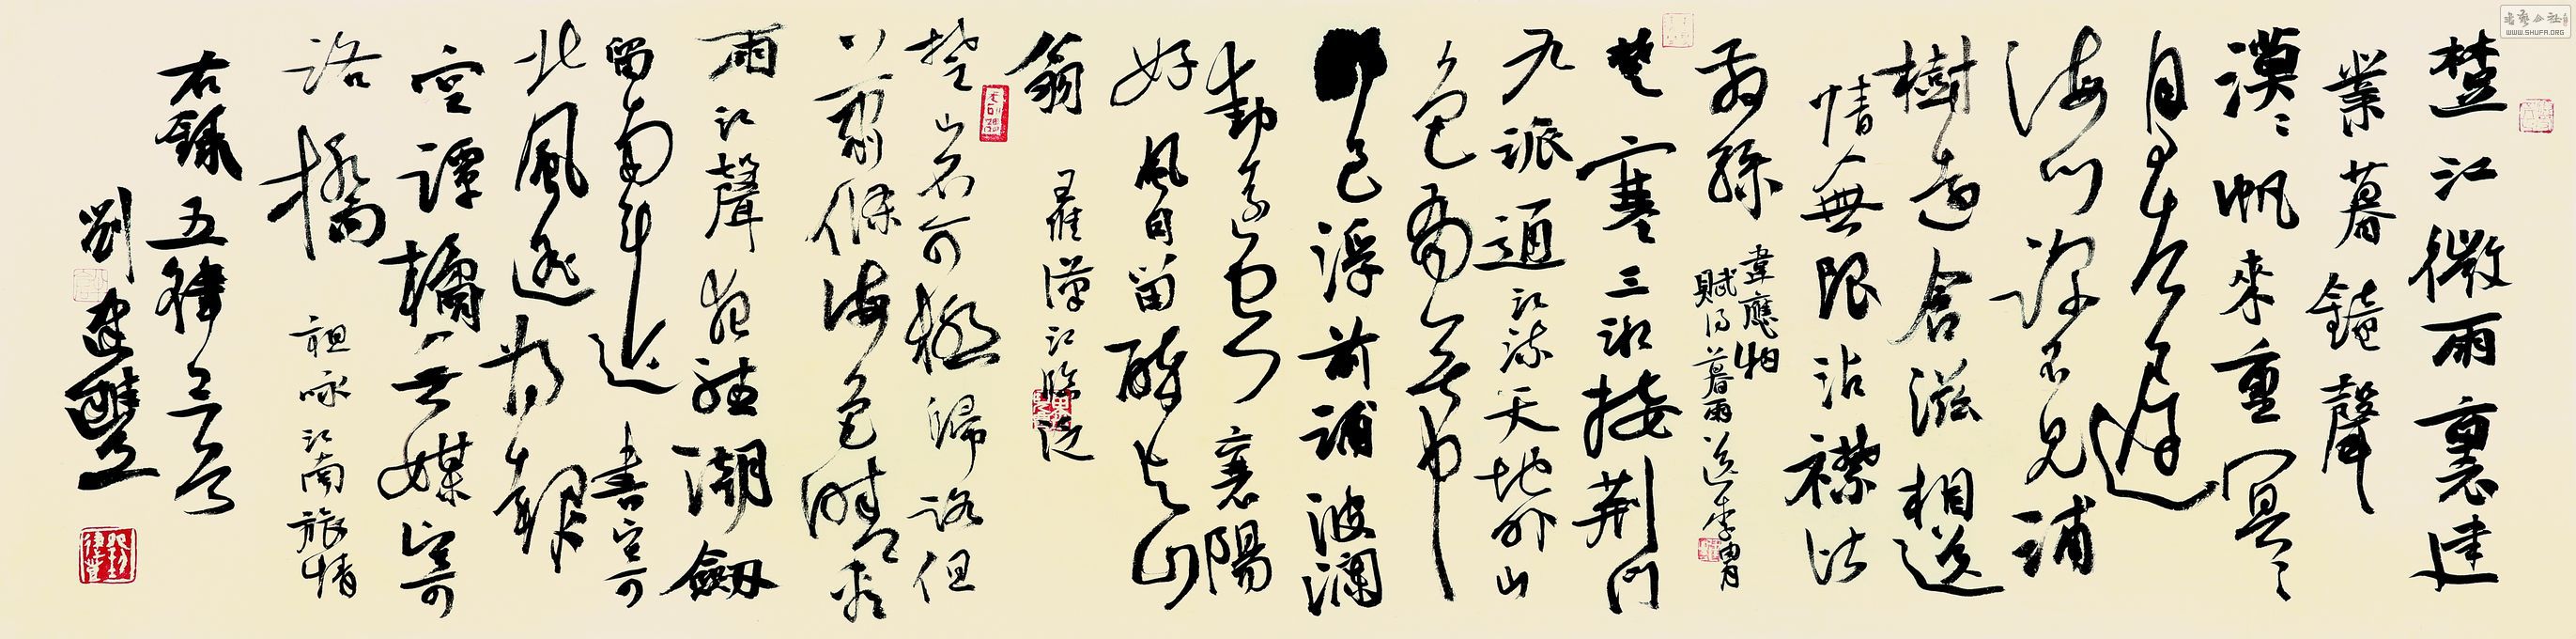 楚江微雨裏建
業暮鐘聲
漠漠帆來重冥冥
鳥去遲
海門深不見浦
樹遠含滋相送
情無限沾襟比
散絲
韋應物
賦得暮雨送李冑
楚塞三湘接荆門
九派通江流天地外山
色有無中
郡邑浮前浦波瀾
動遠空襄陽
好風日留醉與山
翁 王維漢江臨泛
楚山不可極歸路但
蕭條海色晴看
雨江聲夜聽潮劍
留南斗近書寄
北風遙爲報
空潭橘無媒寄
洛橋 祖詠江南旅情
右錄五律三首
劉建
WWW.SHUFA.ORG